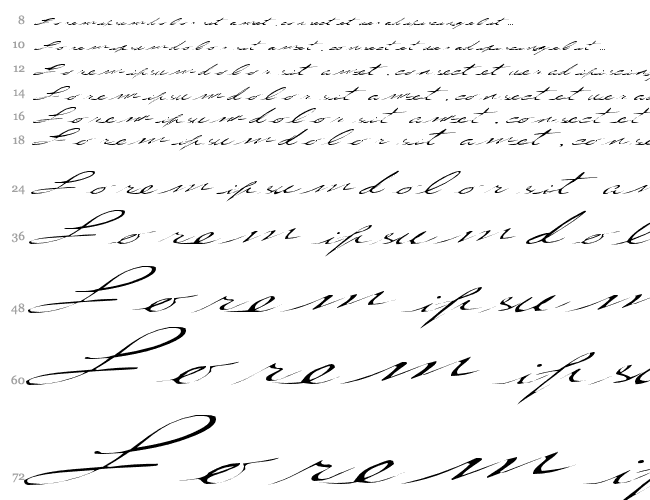 8 Lorem ipsum dolor sit amet, consectetuer adipiscing elit ...
10 Lorem ipsum dolor sit amet, consectetuer adipiscing elit ...
12 Lorem ipsum dolor sit amet, consectetuer adipiscing
14 Lorem ipsum dolor sit amet, consectetuer a
16 Lorem ipsum dolor sit amet, consectet
18 Lorem ipsum dolor sit amet, conse
24 Lorem ipsum dolor sit am
36 Lorem ipsum dol
48 Lorem ipsum
60 Lorem ipsu
72 Lorem i